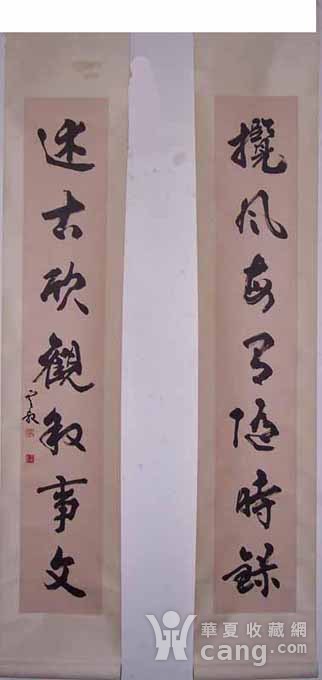 攬風每有隨時錄
述古欣觀叙事文
華夏收藏網
cang.com